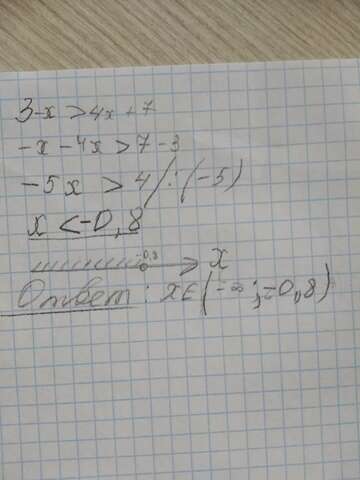 3-x > 4x + 7
-x - 4x > 7 - 3
-5x > 4 / : (-5)
x < -0,8
-0,8 x
Ответ: x∈(-∞; -0,8)